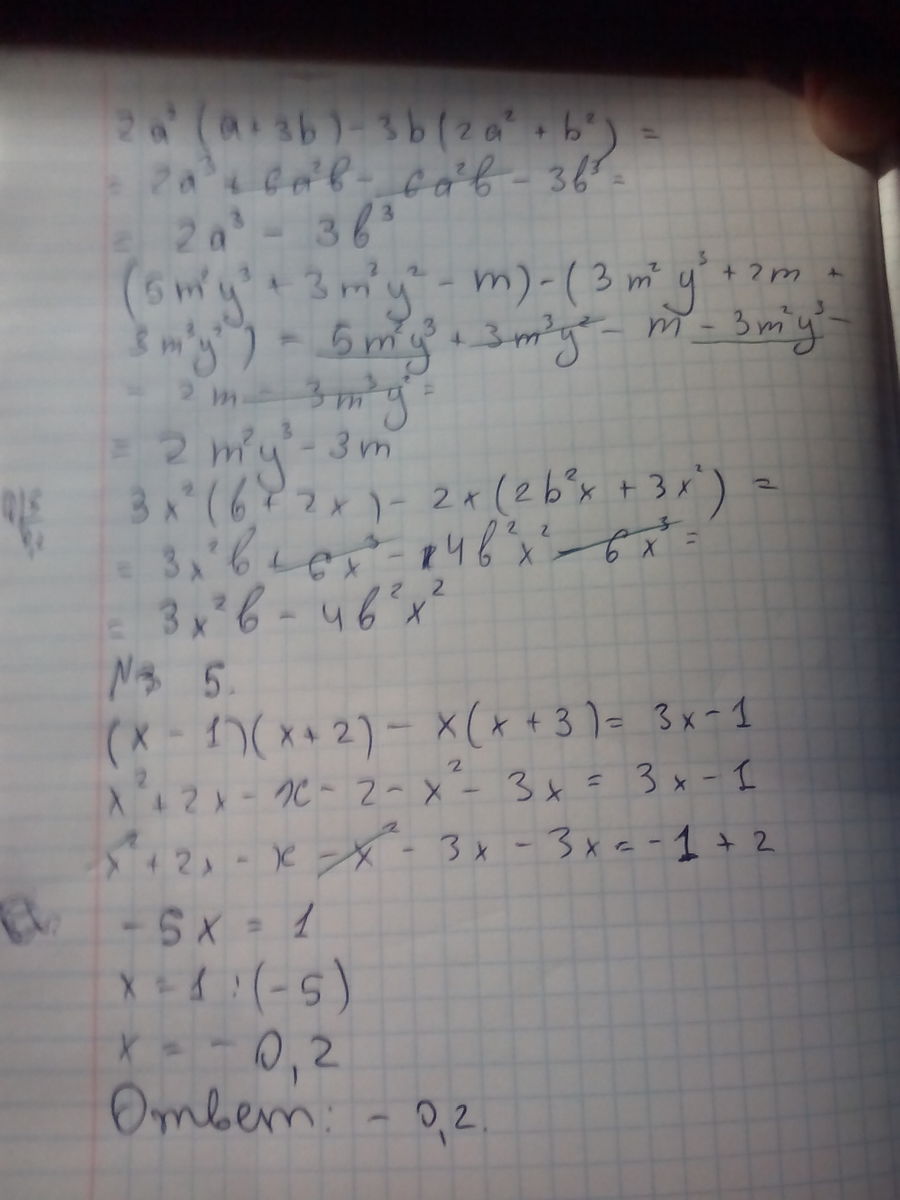 2a² (a + 3b) - 3b (2a² + b²) =
= 2a³ + 6a²b - 6a²b - 3b³ =
= 2a³ - 3b³
(5m²y³ + 3m³y² - m) - (3m²y³ + 2m +
3m³y²) = 5m²y³ + 3m³y² - m - 3m²y³ -
- 2m - 3m³y² =
= 2m²y³ - 3m
3x² (b + 2x) - 2x (2b²x + 3x²) =
= 3x²b + 6x³ - 4b²x² - 6x³ =
= 3x²b - 4b²x²
N3 5.
(x - 1)(x + 2) - x(x + 3) = 3x - 1
x² + 2x - x - 2 - x² - 3x = 3x - 1
x² + 2x - x - x² - 3x - 3x = -1 + 2
-5x = 1
x = 1 : (-5)
x = - 0,2
Ответ: - 0,2.